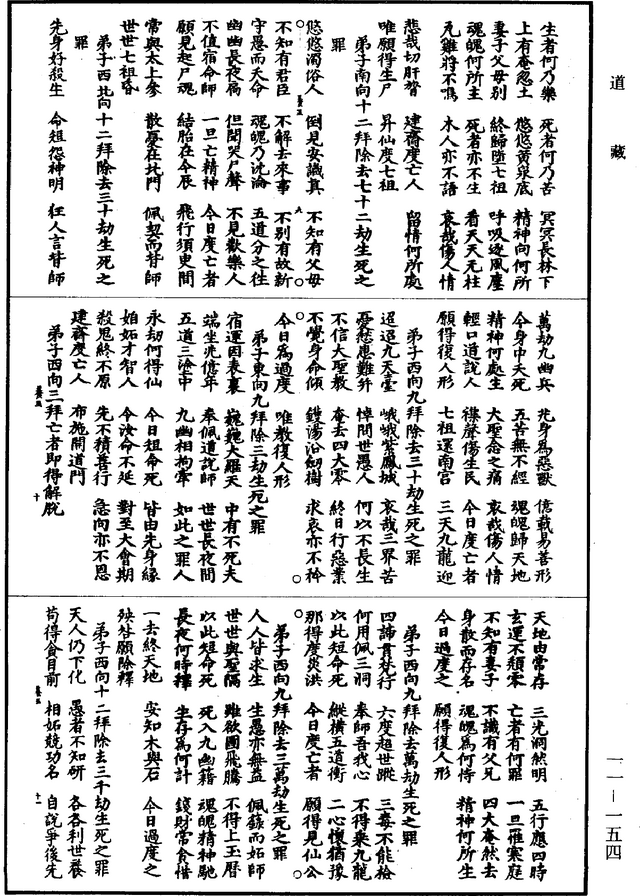 道藏
生者何乃樂　死者何乃苦　冥冥長林下
上有奄忽土　悠悠黃泉底　精神向何所
妻子父母別　終歸墮七祖　呼吸逐風塵
魂魄何所主　死者亦不生　看天天无柱
瓦雞將不鳴　木人亦不語　哀哉傷人情
悲哉切肝膂　建齋度亡人　留情何所處
唯願得生尸　昇仙度七祖
弟子南向十二拜除去七十二劫生死之
罪
悠悠濁俗人　倒見安識真　不知有父母
不知有君臣　不解去來事　不別有故新
守愚而夭命　魂魄乃沈淪　五道分之往
幽幽長夜局　但聞哭尸聲　不見歡樂人
不值宿命師　一旦亡精神　今日度亡者
願見起尸魂　結胎在今辰　飛行須臾間
常與太上參　散憂在北門　佩契而昔師
世世七祖昏
弟子西北向十二拜除去三十劫生死之
罪
先身好殺生　命短怨神明　狂人言昔師
萬劫九幽兵　先身為惡獸　億載易善形
今身中夭死　五苦無不經　魂魄歸天地
精神何處生　大聖念之痛　哀哉傷人情
輕口道說人　禊聲傷生民　今日度亡者
願得復人形　七祖還南宮　三天九龍迎
弟子西向九拜除去三十劫生死之罪
迢迢九天臺　峨峨紫鳳城　哀哉三界苦
憂愁患難并　悼問世愚人　何以不長生
不信大聖教　奄去四大零　終日行惡業
不覺身命傾　鑊湯沿劒樹　求哀亦不矜
今日為過度　唯教復人形
弟子東向九拜除三劫生死之罪
宿運因表裏　巍巍大羅天　中有不死夫
端坐兆億年　奉佩道說師　世世長夜間
五道三塗中　九幽相拘牽　如此之罪人
永劫何得仙　今日短命死　皆由先身緣
妲妬才智人　今汝命不延　對至大會期
殺鬼終不原　先不積善行　急向亦不恩
建齋度亡人　布施開道門
弟子西向三拜亡者即得解脫
天地由常存　三光洞然明　五行應四時
玄運不頹零　亡者有何罪　一旦罹寒庭
不知有妻子　不識有父兄　四大奄然去
身散而存名　魂魄為何恃　精神何所生
今日過度之　願得復人形
弟子西向九拜除去萬劫生死之罪
四諦貫梵行　六度超世蹤　三毒不能捡
何用佩三洞　奉師吾我心　不得乘九龍
以此短命死　縱橫五道衝　二心懷猶豫
那得度災洪　今日度亡者　願得見仙公
弟子西向九拜除去三萬劫生死之罪
人人皆求生　生愚亦無益　佩籙而妬師
世世與聖隔　雖欲圖飛騰　不得上玉曆
以此短命死　死入九幽籍　魂魄精神馳
長夜何時釋　生存為何計　錢財常貪惜
一去終天地　安知木與石　今日過度之
殃咎願除釋
弟子西向十二拜除去三千劫生死之罪
天人仍下化　愚者不知研　各各利世榮
苟得貪目前　相妬競功名　自說爭後先
一一－一五四